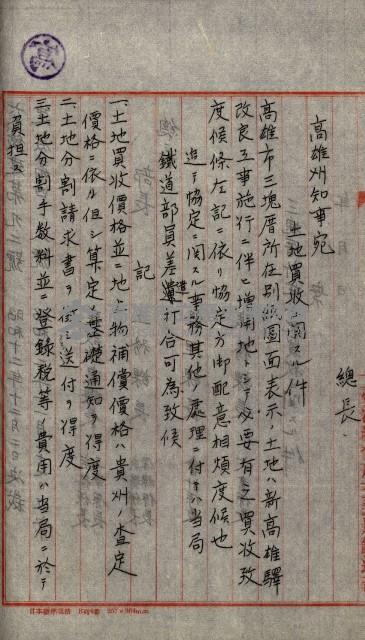 高雄州知事宛
總長
土地買收ニ関スル件
高雄市三塊厝所在別紙圖面表示ノ土地ハ新高雄驛
改良工事施行ニ伴ヒ増用地トシテ必要有之買收致
度候條左記ニ依リ協定方御配意相煩度候也
追テ協定ニ関スル事務其他ノ處理ニ付テハ当局
鐵道部員差遣打合可為致候
記
一、土地買收價格並ニ地上物補償價格ハ貴州ノ査定
價格ニ依ル但シ算定ノ基礎通知ヲ得度
二、土地分割請求書ヲ送付ヲ得度
三、土地分割手数料並ニ登錄税等ノ費用ハ当局ニ於テ
負担ス